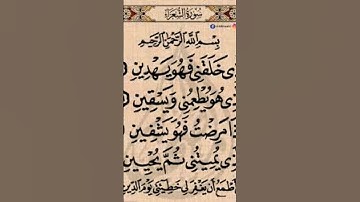 سُورَةُ الشُّعَرَاء
بِسْمِ اللَّهِ الرَّحْمَٰنِ الرَّحِيمِ
خَلَقَنِي فَهُوَ يَهْدِينِ
ى هُوَ يُطْعِمُنِي وَيَسْقِينِ
مَرِضْتُ فَهُوَ يَشْفِينِ
ى يُمِيتُنِي ثُمَّ يُحْيِينِ
أَطْمَعُ أَن يَغْفِرَ لِي خَطِيئَتِي يَوْمَ الدِّينِ